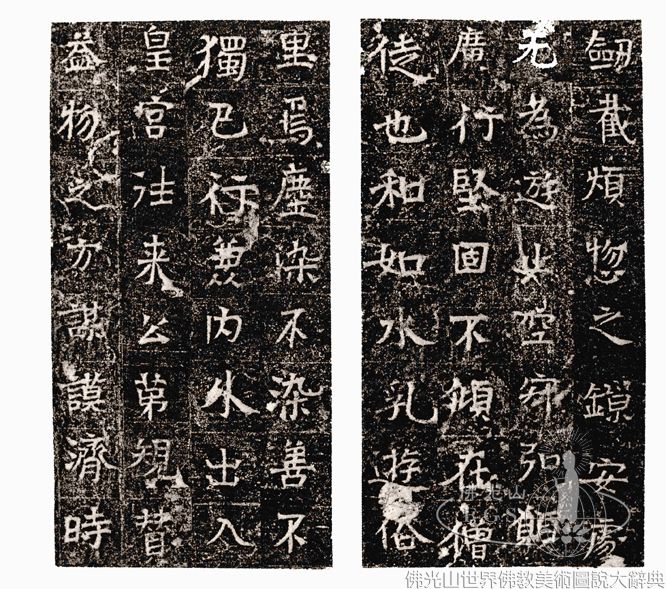 劒截煩惱之鏁安處
无為遊空寂弘願
廣行堅固不傾在僧
徒也和如水乳遊俗
里焉塵染不染善不
獨己行兼内外出入
皇宮往来公第規贊
益物之方謀謨濟時
佛光山
F.G.S.
佛光山世界佛教美術圖說大辭典